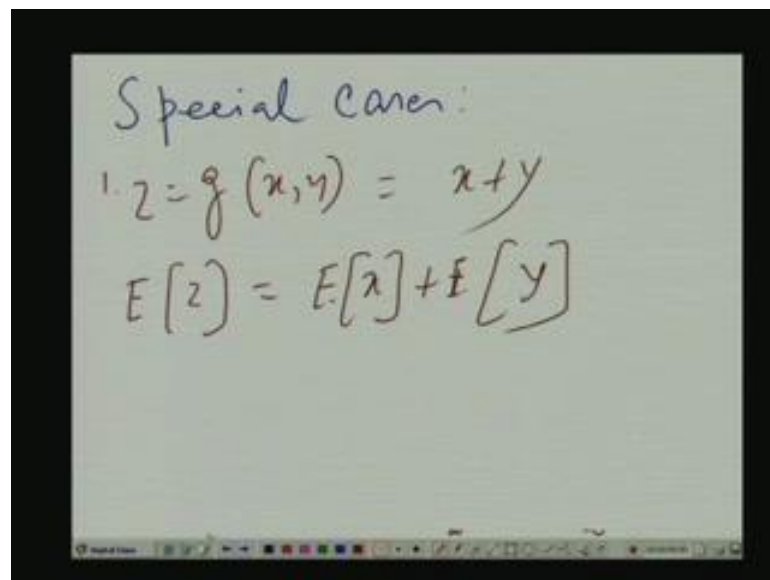 Special cases:
1. z = g(x,y) = x+y
E[z] = E[x] + E[y]